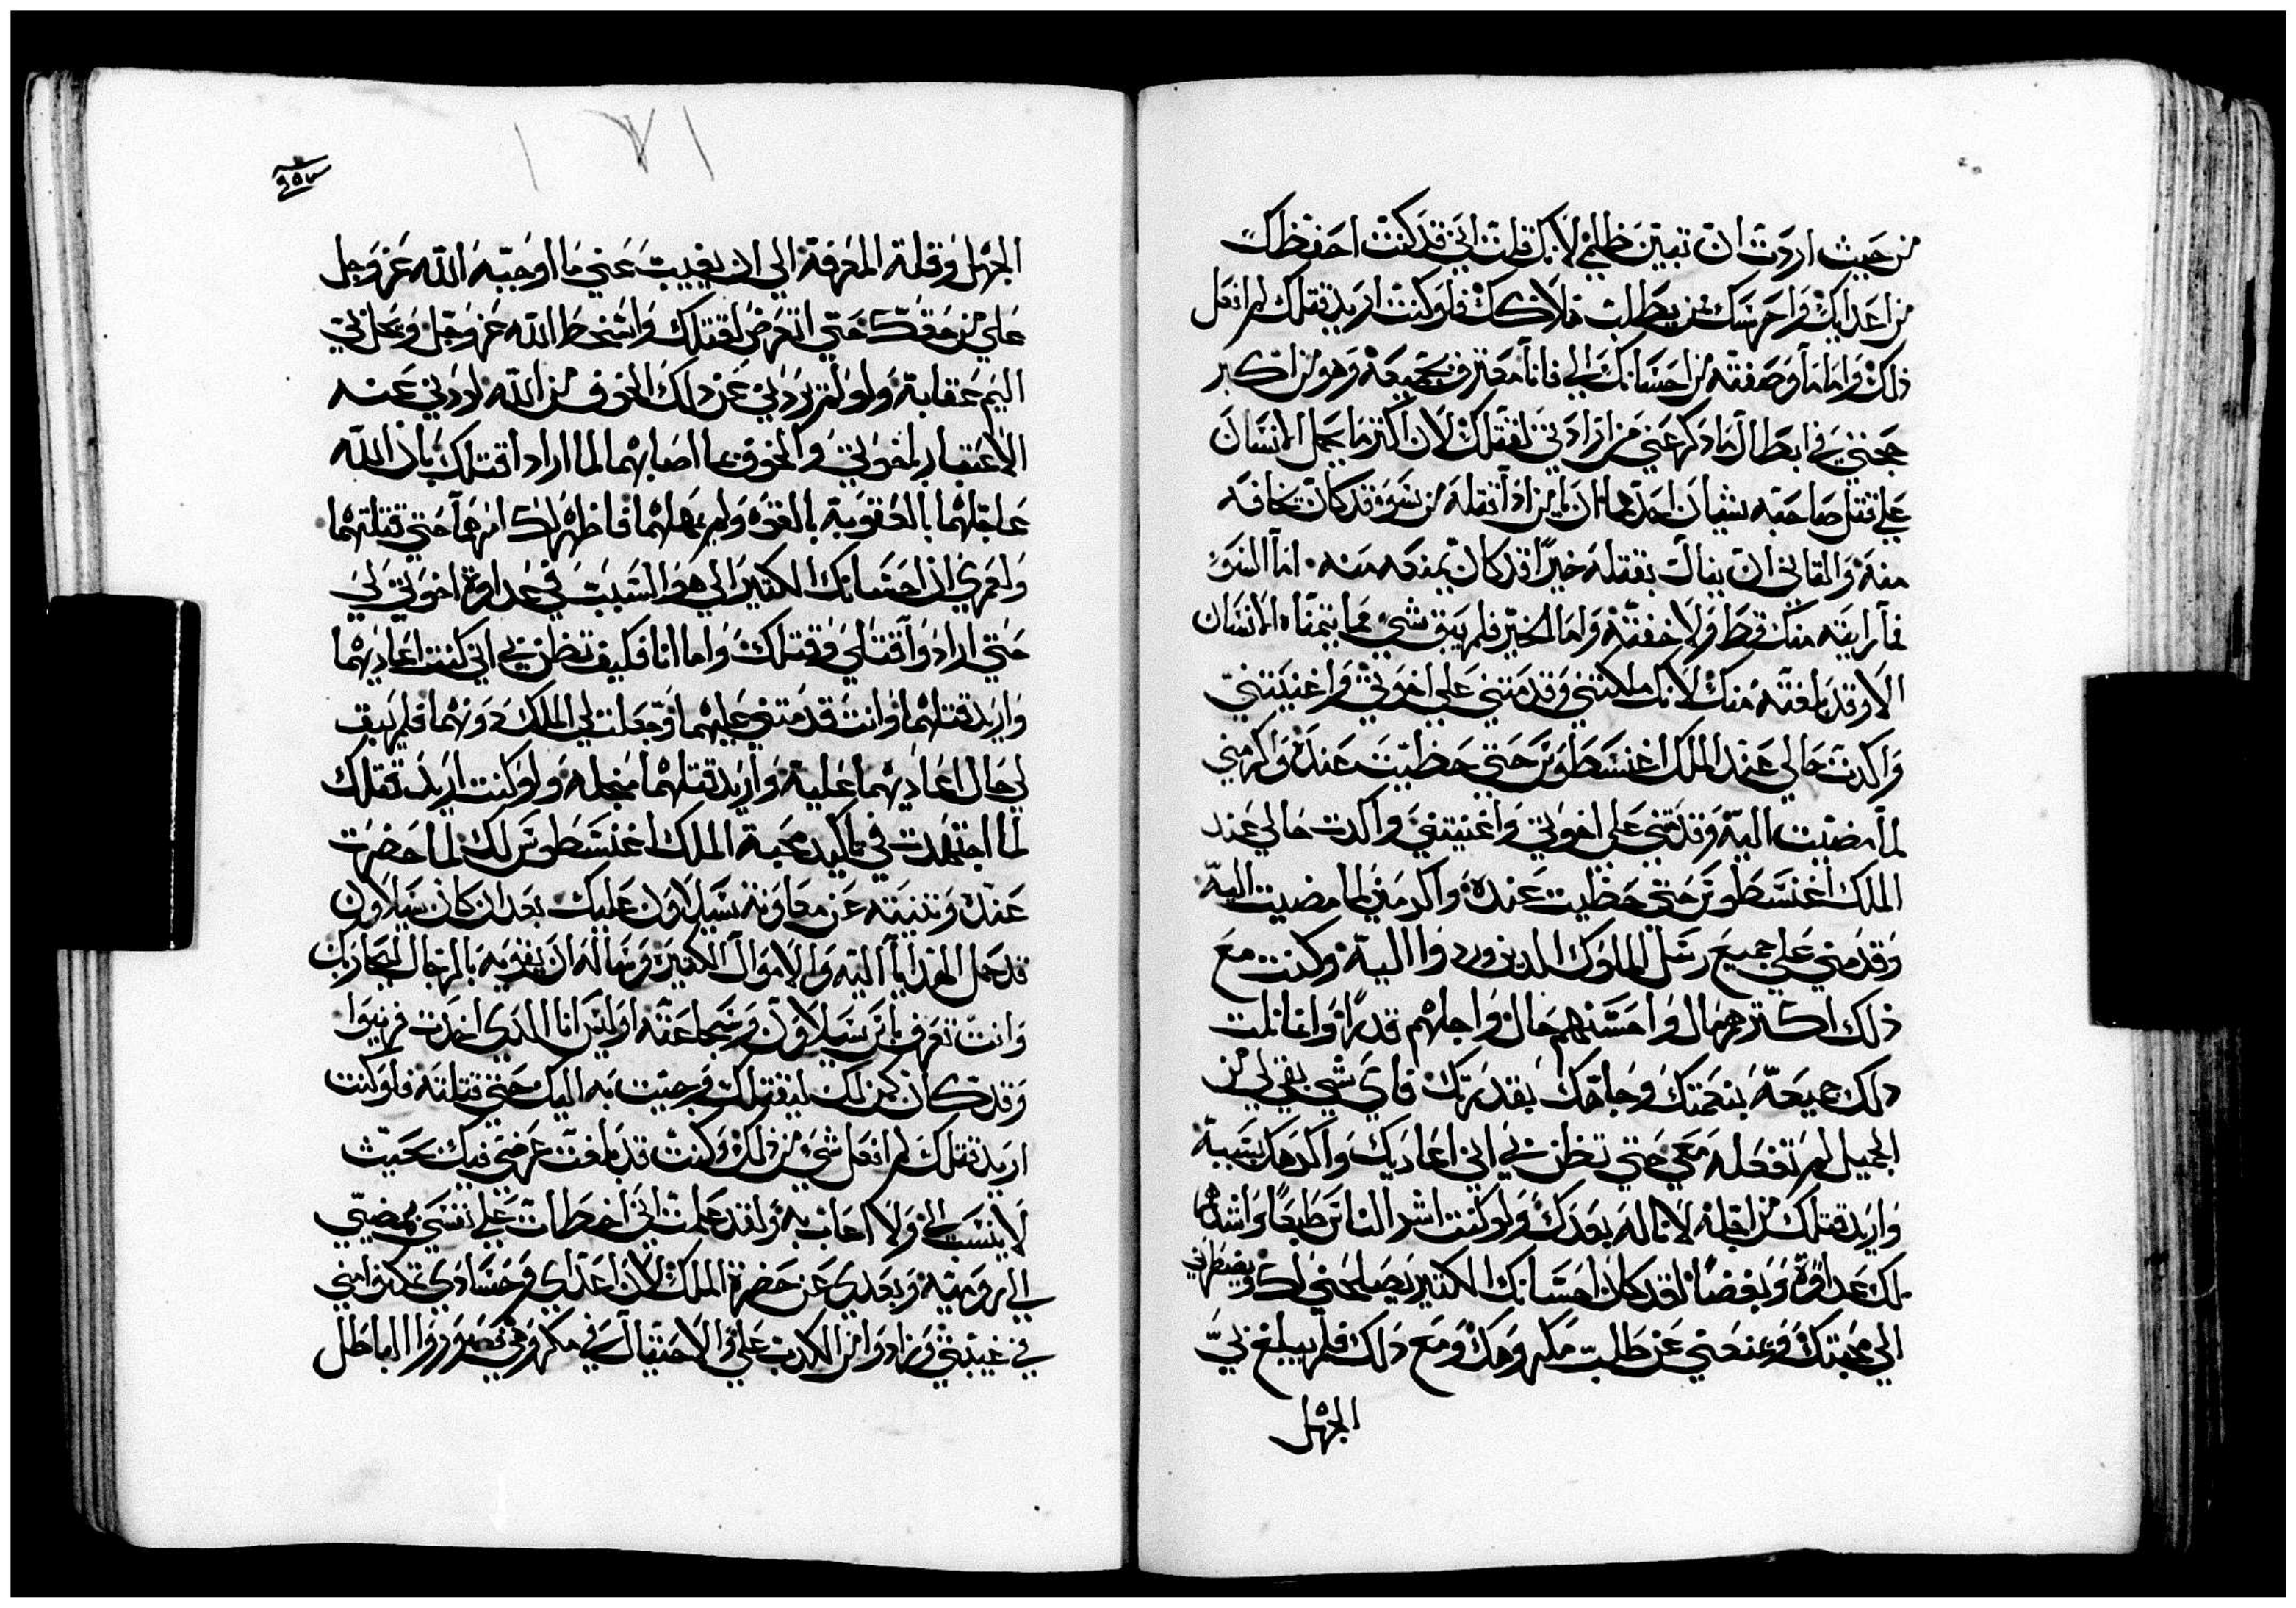 من حيث اردت ان تبين ظلمي لانك قلت اني قد كنت احفظك
من اعدايك واحرسك ممن يطلب هلاكك فلو كنت اريد قتلك لم افعل
ذلك واما ما وصفته من احسانك الي فانا معترف بجميعه وهو من اكبر
حججي في ابطال ما ذكر عني من ارادتي لقتلك لان اكثر ما يحمل الانسان
علي قتل صاحبه شيان احدهما ان من اراد قتله من شر وقد كان يخافه
منه والثاني ان ينال بقتله خيرا قد كان يمنعه منه اما الشر
فما رايته منك قط ولا خفته واما الخير فلم يبق شي مما يتمناه الانسان
الا وقد بلغته منك لانك ملكتني وقدمتني علي اخوتي واغنيتني
واكدت حالي عند الملك اغنسطوس حتي حظيت عنده واكرمني
لما مضيت اليه وقدمتني علي اخوتي واغنيتني واكدت حالي عند
الملك اغنسطوس حتي حظيت عنده واكرمني لما مضيت اليه
وقدمني علي جميع رسل الملوك الدين وردوا اليه وكنت مع
ذلك اكترهم مال واحسنهم حال واجلهم قدرا وانما نلت
دلك جميعه بنعمتك وجاهك بقدرتك فاي شي بقي لي من
الجميل لم تفعله معي حتي تظن بي اني اعاديك واكرهك بسببه
واريد قتلك من اجله لاناله بعدك ولو كنت اشر الناس طبعا واشدهم
لك عداوة وبغضا لقد كان احسانك الكتير يصلحني لك ويضطرني
الي محبتك ويمنعني عن طلب مكروهك ومع دلك فلم يبلغ بي
الجهل
٩٥٧
١٧١
الجهل وقلة المعرفة الي ان يغيب عني ما اوجبه الله عز وجل
علي من حقك حتي اتعرض لقتلك واسخط الله عز وجل ويحل بي
اليم عقابه ولو لم يردني عن دلك الخوف من الله لردني عنه
الاعتبار باخوتي والخوف مما اصابهما لما ارادا قتلك بان الله
عاجلهما بالعقوبة بالقوه ولم يمهلهما فاظهر لك امرهما حتي قتلتهما
ولعمري ان احسانك الكتير الي هو السبب في عداوة اخوتي لي
حتي ارادوا قتلي وقتلك واما انا فكيف تظن بي اني كنت اعاديهما
واريد قتلهما وانت قدمتني عليهما وجعلت لي الملك دونهما فلم يبق
لي حال اعاديهما عليه واريد قتلهما من اجله ولو كنت اريد قتلك
لما اجتهدت في تاكيد محبة الملك اغنسطوس لك لما حضرت
عنده وتنيته عن معاونة سيلاون عليك بعد ان كان سيلاون
قد حمل الهدايا اليه والاموال الكتيرة وساله ان يقويه بالرجال ليحاربك
وانت تعرف باس سيلاون وشجاعته اوليس انا الدي اخدت
وقد كان كمن لك ليقتلك وجيت به اليك حتي قتلته فلو كنت
اريد قتلك لم افعل شي من ذلك وكنت قد بلغت غرضي فيك بحيث
لا ينسب الي ولا اعاب به ولقد علمت اني اخطات علي نفسي بمضيي
الي رومية وبعدي عن حضرة الملك لان اعداي وحسادي تمكنوا مني
في غيبتي وزادوا من الكدب علي والاحتيال في مكروهي وزوروا الباطل